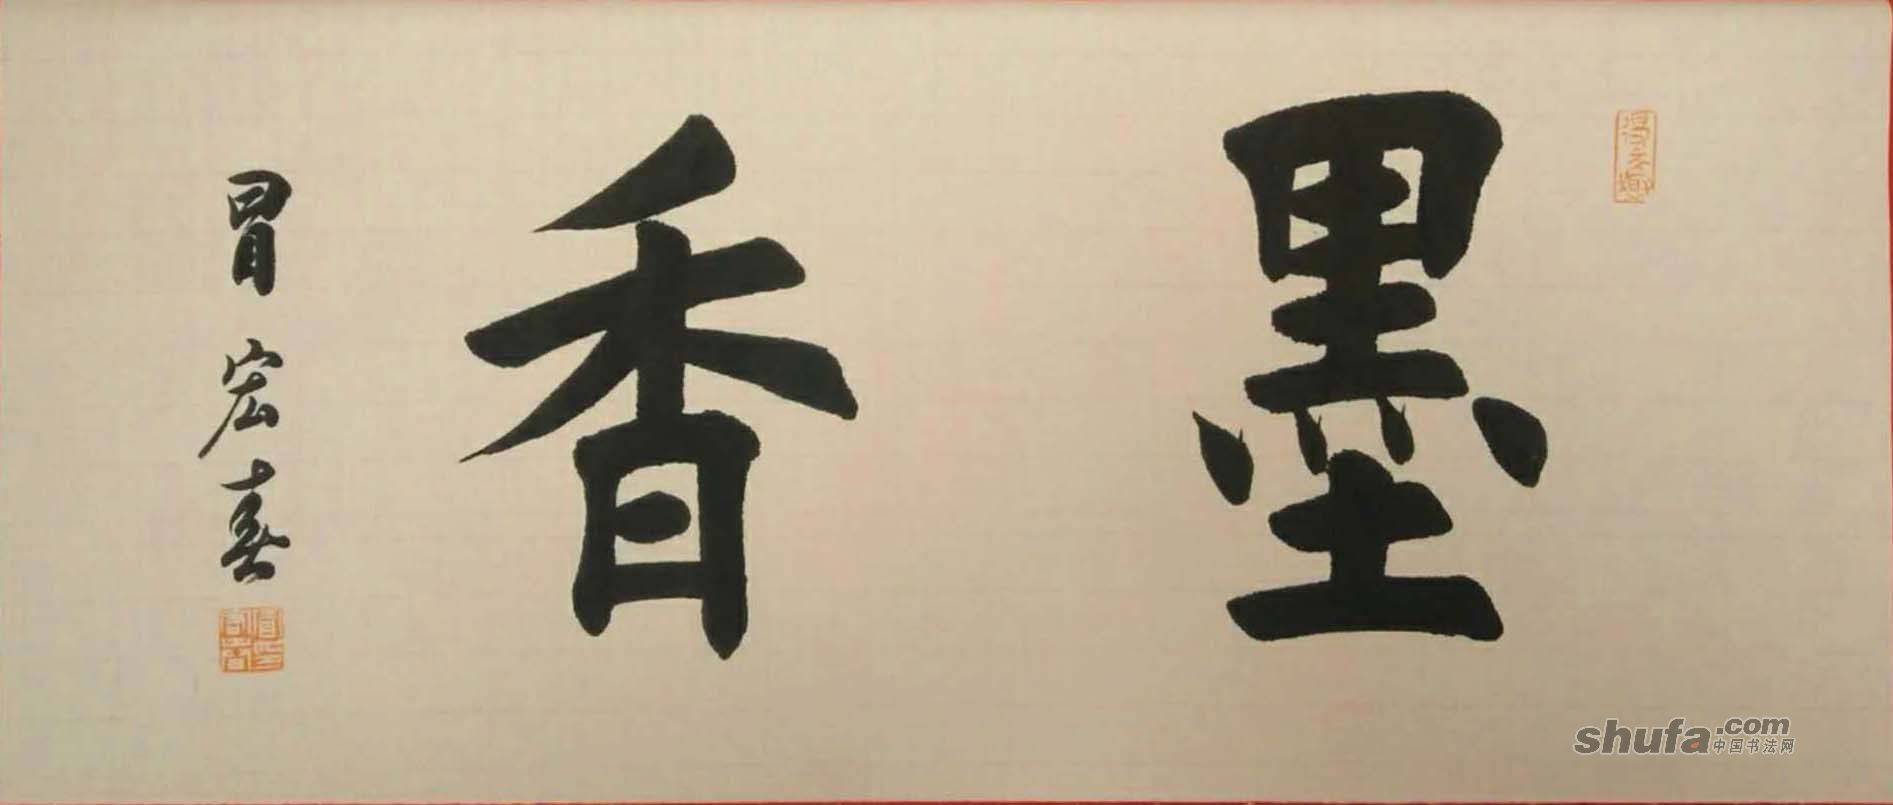 墨香
冒宏
shufa.com
中国书法网